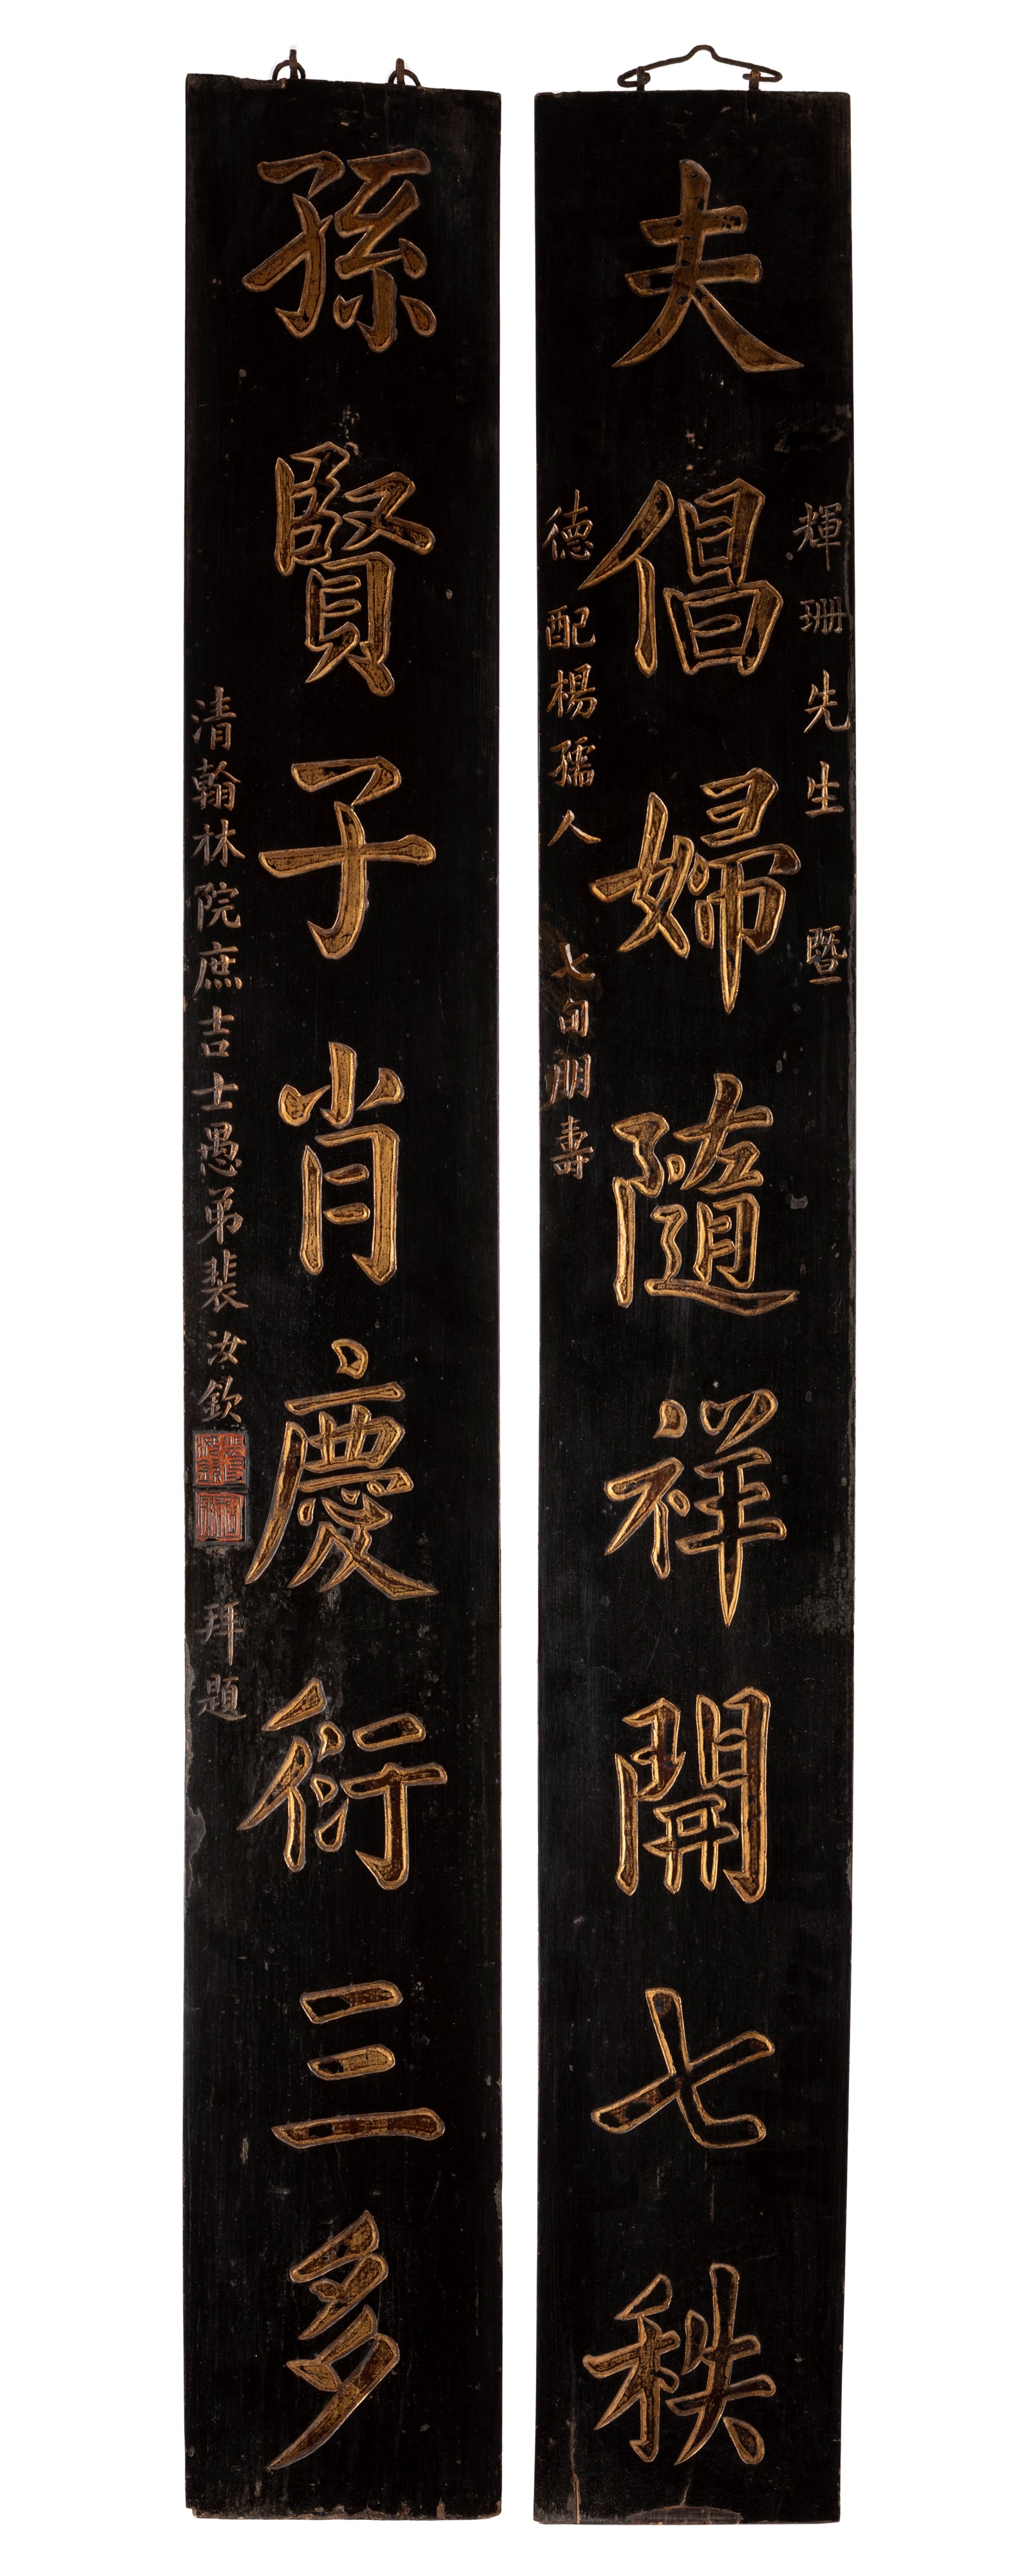 輝珊先生暨
夫倡婦隨祥開七秩
德配楊孺人 七旬朋壽
孫賢子肖慶衍三多
清翰林院庶吉士愚弟裴汝欽 拜題